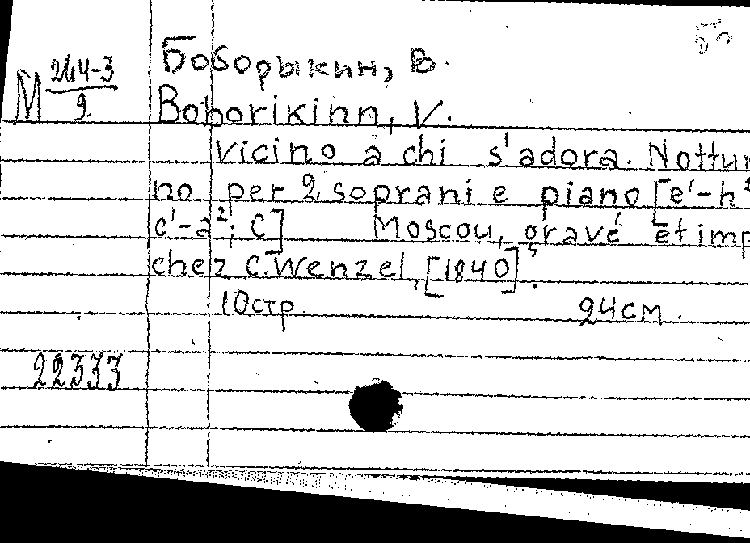 Бо
Боборыкин, В.
М 244-3
9
Boborikinn, V.
Vicino a chi s'adora. Nottur
no per 2 soprani e piano [e'-h²
c'-a²; C] Moscou, gravé et imp
chez C. Wenzel, [1840].
10стр. 24см.
22333